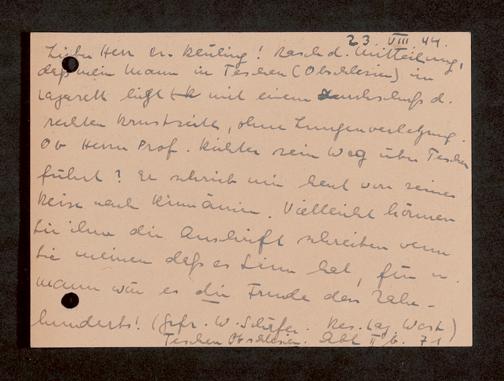 23 VIII 44.
Lieber Herr Dr. Keiling! Rasch d. Mitteilung,
daß mein Mann in Teschen (Obschlesien) im
Lazarett liegt mit einem Durchschuß d.
rechten Brustseite, ohne Lungenverletzung.
Ob Herrn Prof. Richter sein Weg über Teschen
führt? Er schrieb mir heut von seiner
Reise nach Rumänien. Vielleicht können
Sie ihm die Anschrift schreiben wenn
Sie meinen daß es Sinn hat, für m.
Mann wär es die Freude des Jahr-
hunderts! (Gefr. W. Schäfer. Res. Laz. West)
Teschen Obschlesien. Abt II b. 71